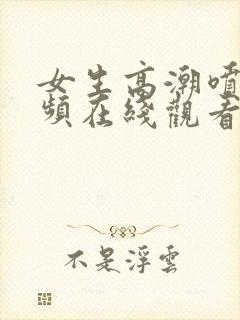 女生高潮噴
頻在綫觀看
不是浮雲